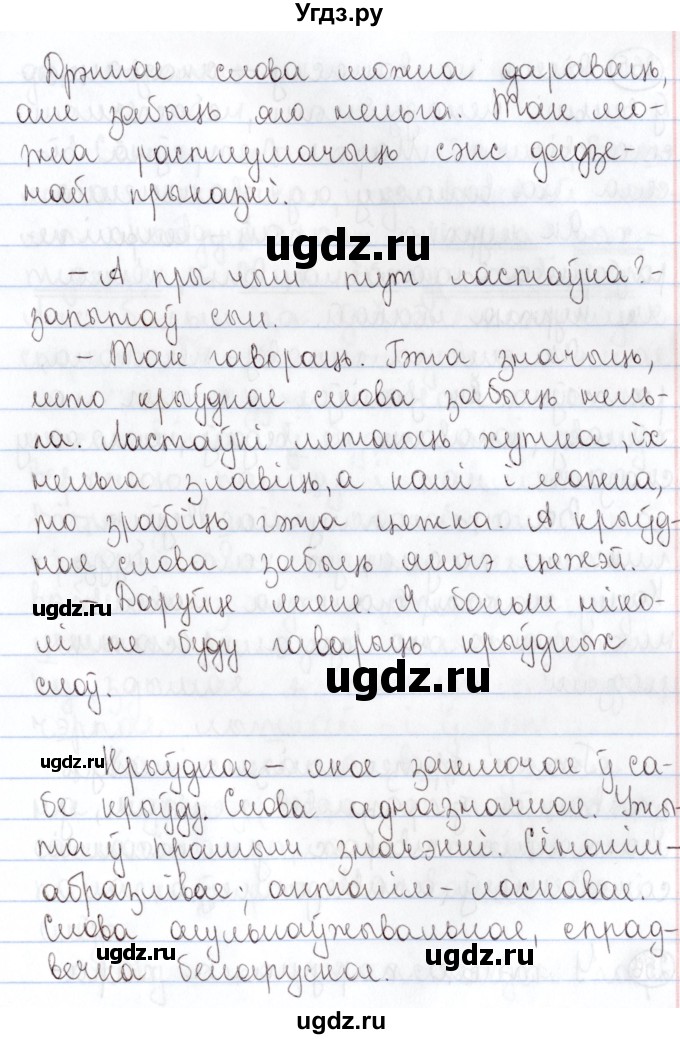 Угдз.ру
Дрэннае слова можна дараваць,
але забыць яго нельга. Так мо-
жна растлумачыць сэнс дадзе-
най прыказкі.
ugdz.ru
– А пры чым тут ластаўка? –
запытаў сын.
– Так гавораць. Гэта значыць,
што крыўднае слова забыць нель-
га. Ластаўкі лятаюць хутка, іх
нельга злавіць, а калі і можна,
то зрабіць гэта цяжка. А крыўд-
нае слова забыць яшчэ цяжэй.
ugdz.ru
– Даруйце мне. Я больш ніко-
лі не буду гаварыць крыўдных
слоў.
ugdz.ru
ugdz.ru
Крыўднае – якое заключае ў са-
бе крыўду. Слова адназначнае. Ужы-
та ў прамым значэнні. Сінонім –
абразлівае, антонім – ласкавае.
Слова агульнаўжывальнае, спрад-
вечна беларускае.
ugdz.ru
ugdz.ru
ugdz.ru